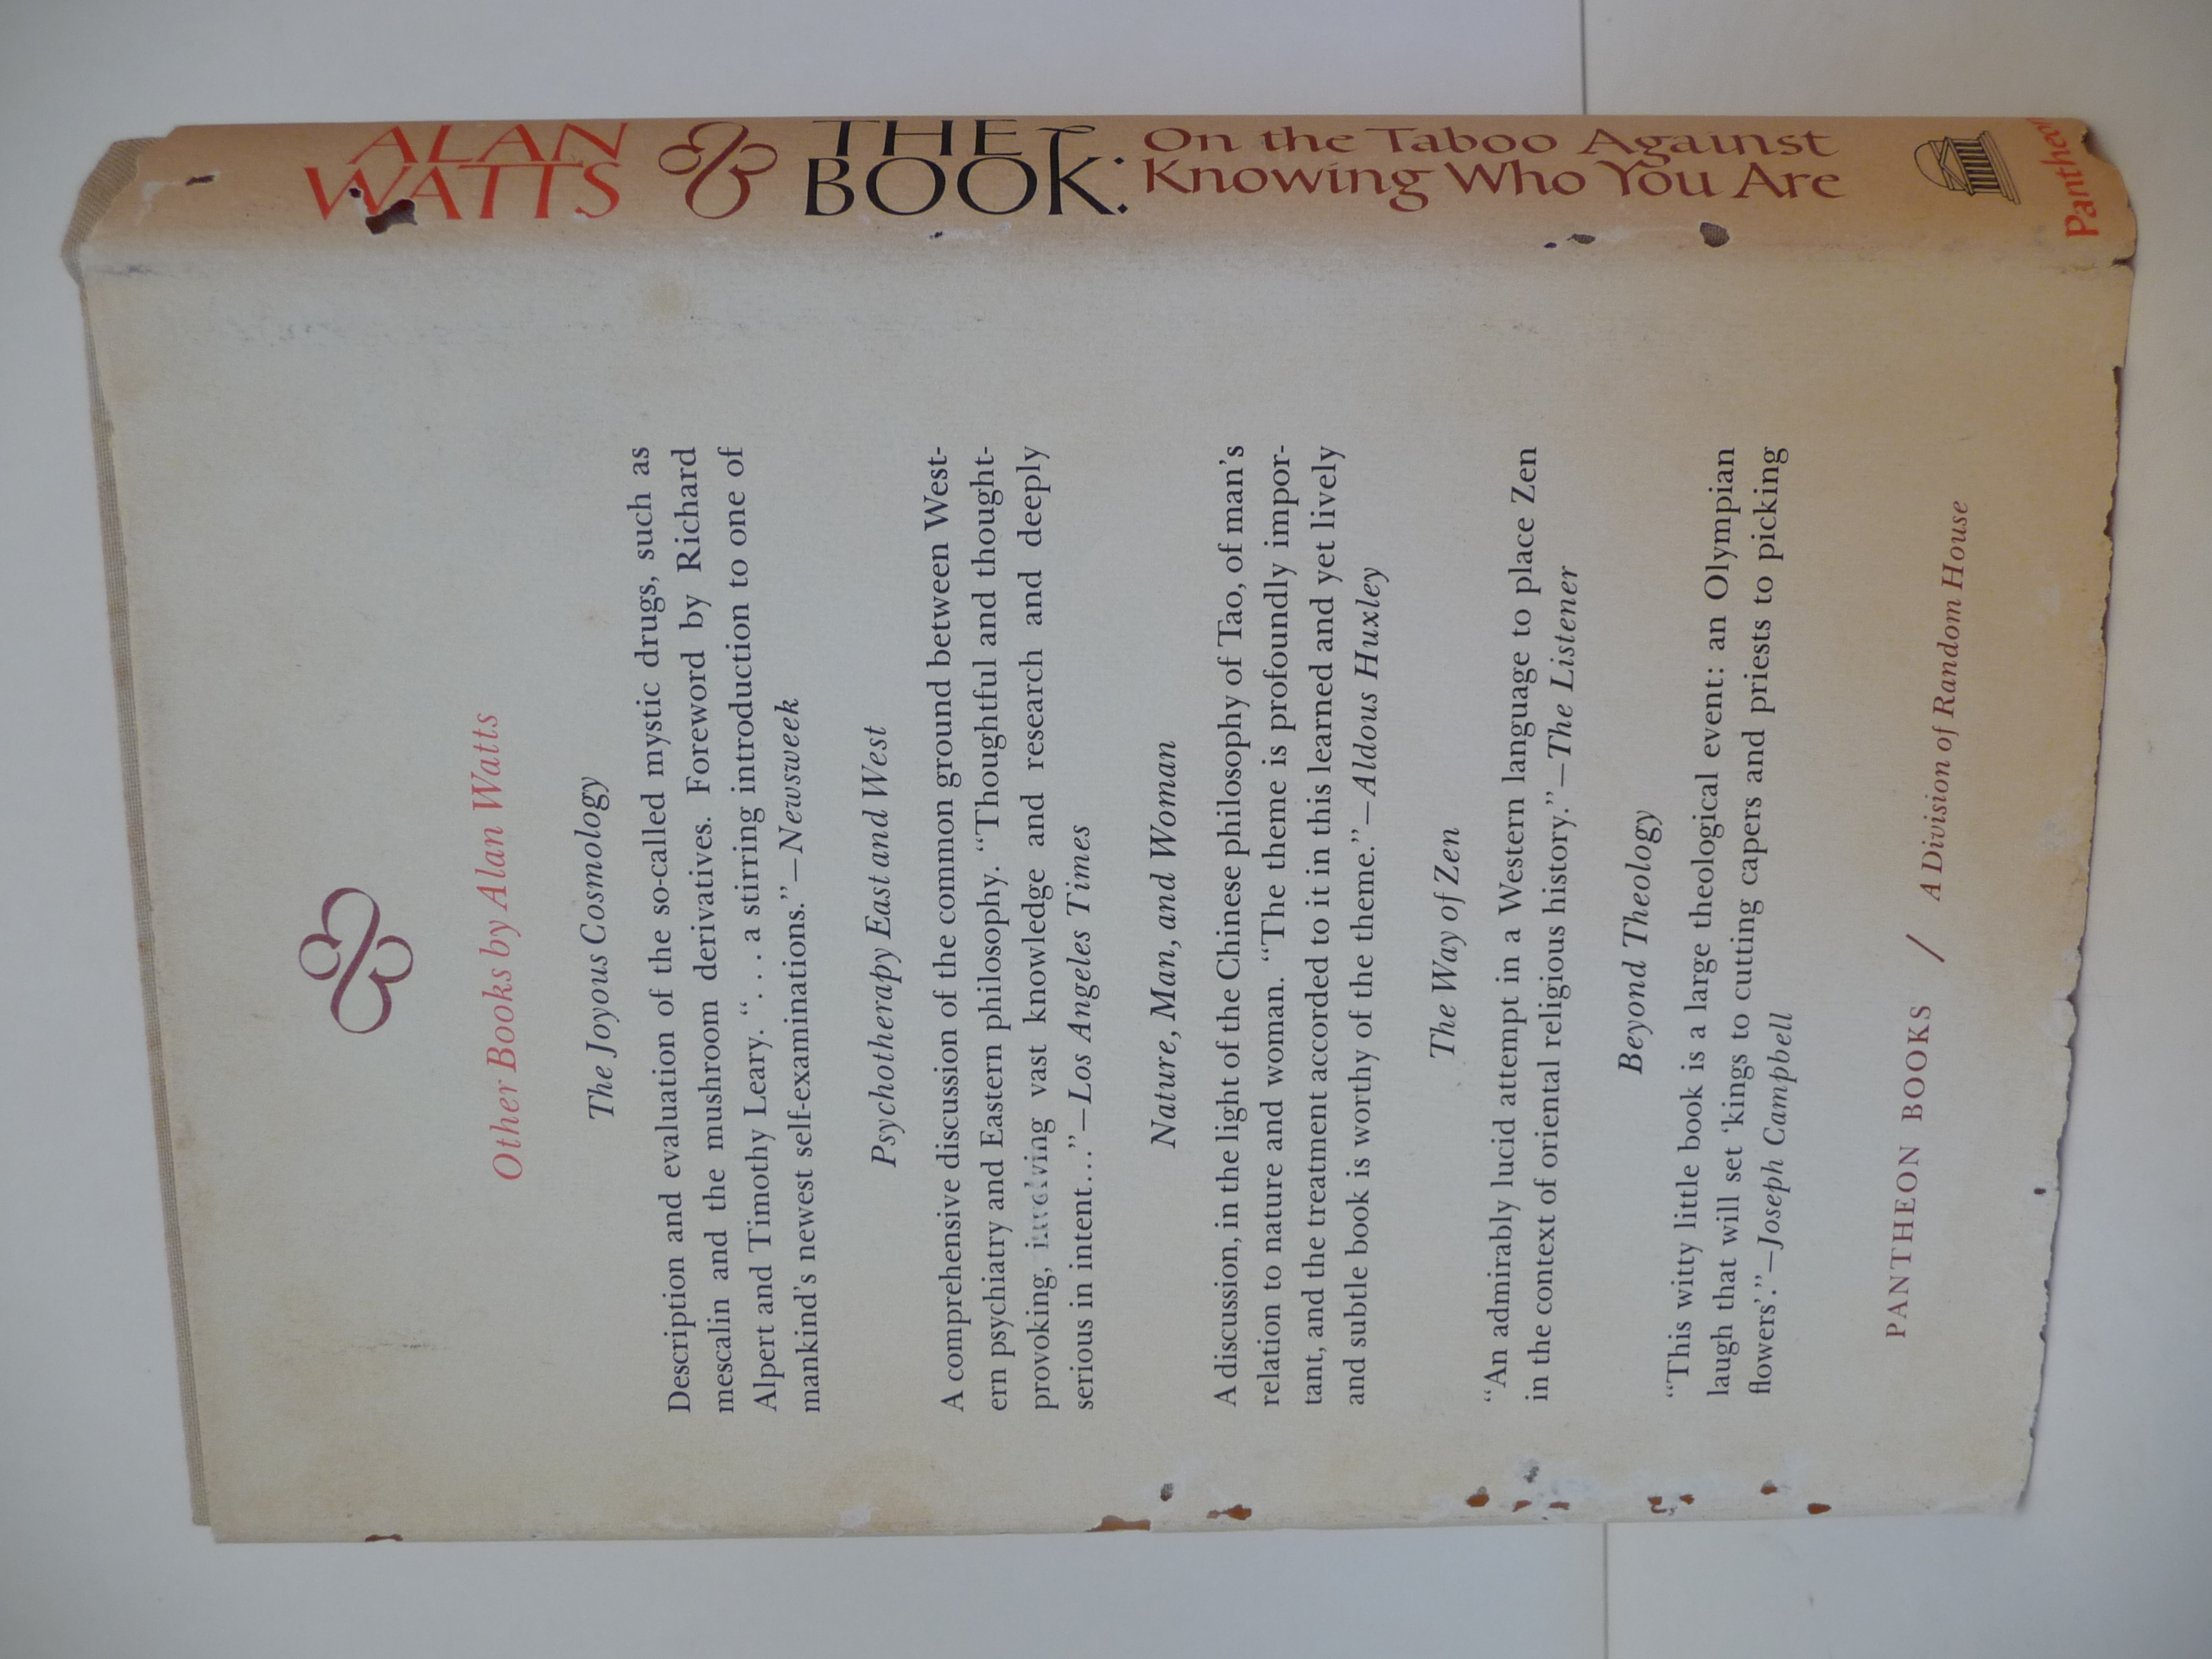 ALAN
WATTS
THE
BOOK:
On the Taboo Against
Knowing Who You Are
Pantheon
Other Books by Alan Watts
The Joyous Cosmology
Description and evaluation of the so-called mystic drugs, such as
mescalin and the mushroom derivatives. Foreword by Richard
Alpert and Timothy Leary. “. . . a stirring introduction to one of
mankind’s newest self-examinations.”—Newsweek
Psychotherapy East and West
A comprehensive discussion of the common ground between West-
ern psychiatry and Eastern philosophy. “Thoughtful and thought-
provoking, involving vast knowledge and research and deeply
serious in intent...”—Los Angeles Times
Nature, Man, and Woman
A discussion, in the light of the Chinese philosophy of Tao, of man’s
relation to nature and woman. “The theme is profoundly impor-
tant, and the treatment accorded to it in this learned and yet lively
and subtle book is worthy of the theme.”—Aldous Huxley
The Way of Zen
“An admirably lucid attempt in a Western language to place Zen
in the context of oriental religious history.”—The Listener
Beyond Theology
“This witty little book is a large theological event: an Olympian
laugh that will set ‘kings to cutting capers and priests to picking
flowers’.”—Joseph Campbell
PANTHEON BOOKS / A Division of Random House